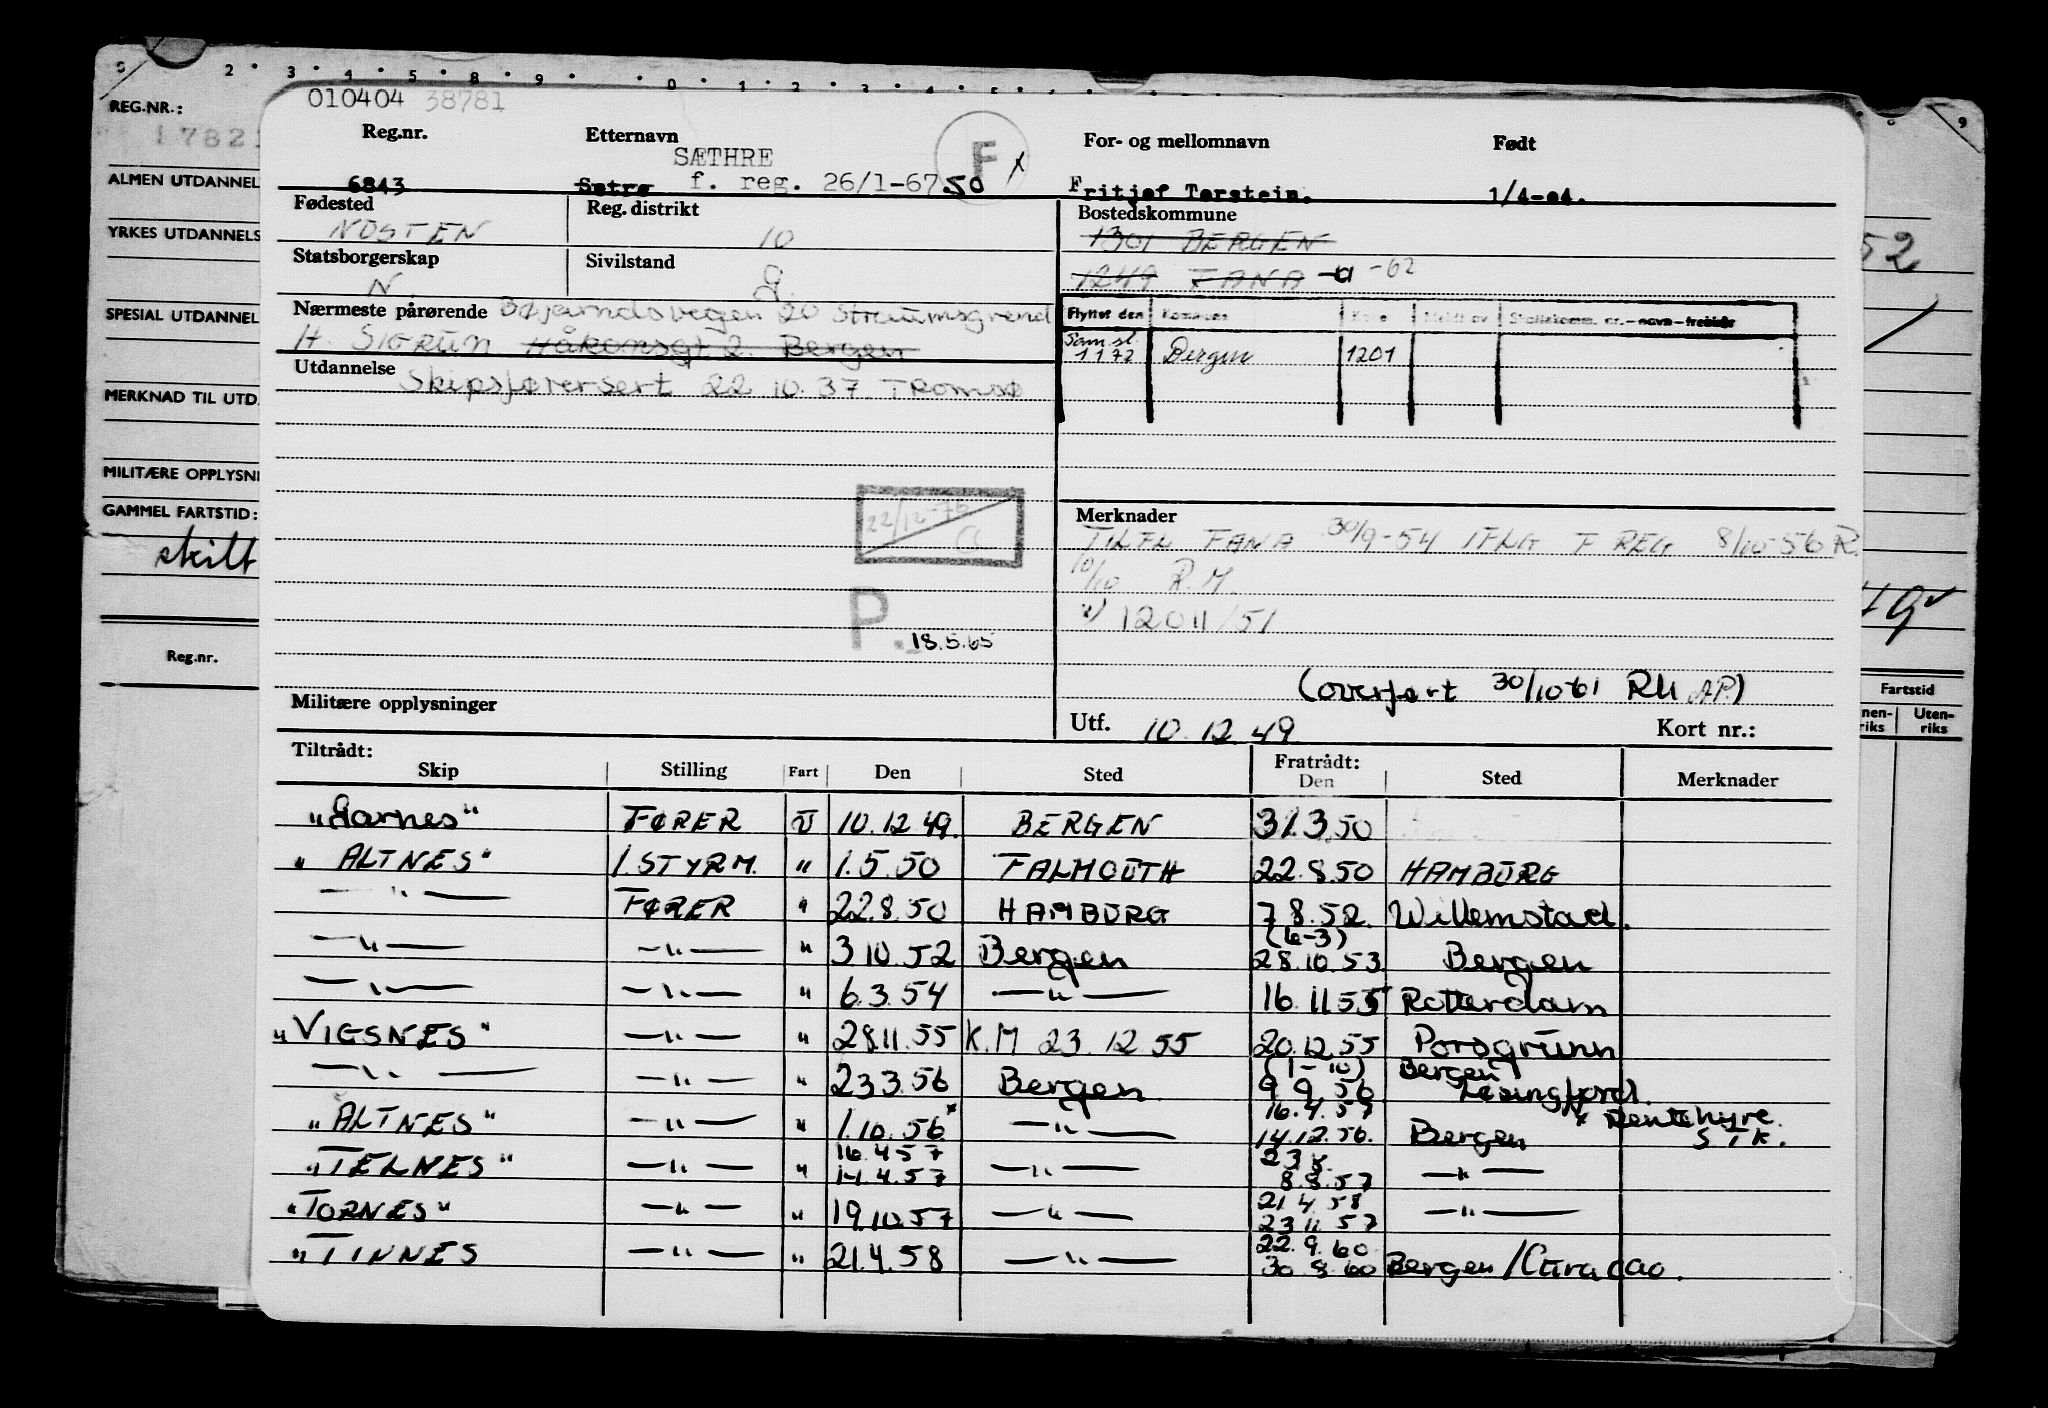 2 3 4 5 8 9 0 1 2 3 4 5
REG.NR.:
ALMEN UTDANNEL
YRKES UTDANNELS
SPESIAL UTDANNEL
MERKNAD TIL UTD.
MILITÆRE OPPLYSNI
GAMMEL FARTSTID:
skilt
Reg.nr.
52
Fartstid
nen-riks Uten-riks
010404 38781
Reg.nr. Etternavn F For- og mellomnavn Født
SÆTHRE
6843 Sætre f. reg. 26/1-67 50 Fritjof Torstein. 1/4-04.
Fødested Reg. distrikt Bostedskommune
NOSTEN 10 1301 BERGEN
Statsborgerskap Sivilstand
N g. 1249 FANA -62
Nærmeste pårørende Bøjarndsvegen 20 Straumsgrend
H. SIGRUN Håkonsgt 2. Bergen
Flyttet den Kommune
Sam.sl.
1 1 72 Bergen 1201
Utdannelse Skipsførersert 22 10. 37 TROMSØ
22/12-76
P. 18.5.65
Merknader
TILFL FANA 30/9-54 IFLG F REG 8/10-56 R.
10/10 R.M.
12011/51
(overført 30/10-61 RM AP.)
Militære opplysninger
Utf. 10. 12 49 Kort nr.:
Tiltrådt: Fratrådt:
Skip Stilling Fart Den Sted Den Sted Merknader
"Garnes" FØRER U 10.12.49. BERGEN 31.3.50
" ALTNES" 1. STYRM. " 1.5.50 FALMOUTH 22.8.50 HAMBURG
— " — FØRER " 22.8.50 HAMBURG 7.8.52. Willemstad.
— " — — " — " 3 10. 52 Bergen (6-3) 28.10.53 Bergen
— " — — " — " 6.3.54 — " — 16.11.55 Rotterdam
"VIGSNES" — " — " 28.11.55 K.M 23.12 55 20.12.55 Porsgrunn
— " — — " — " 23.3.56 Bergen (1-10) 9.9.56 Bergen
"ALTNES" — " — " 1.10.56* — " — 16.4.57 14.12.56. Bergen * Rentehyre. S.T.K.
"TELNES" — " — " 16.4.57 14.4.57 — " — 8.8.57 — " —
"TORNES" — " — " 19.10.57 — " — 21 4 58 23 11. 57 — " —
"TINNES — " — " 21.4.58 — " — 22.9.60 30.8.60 Bergen/Curacao.